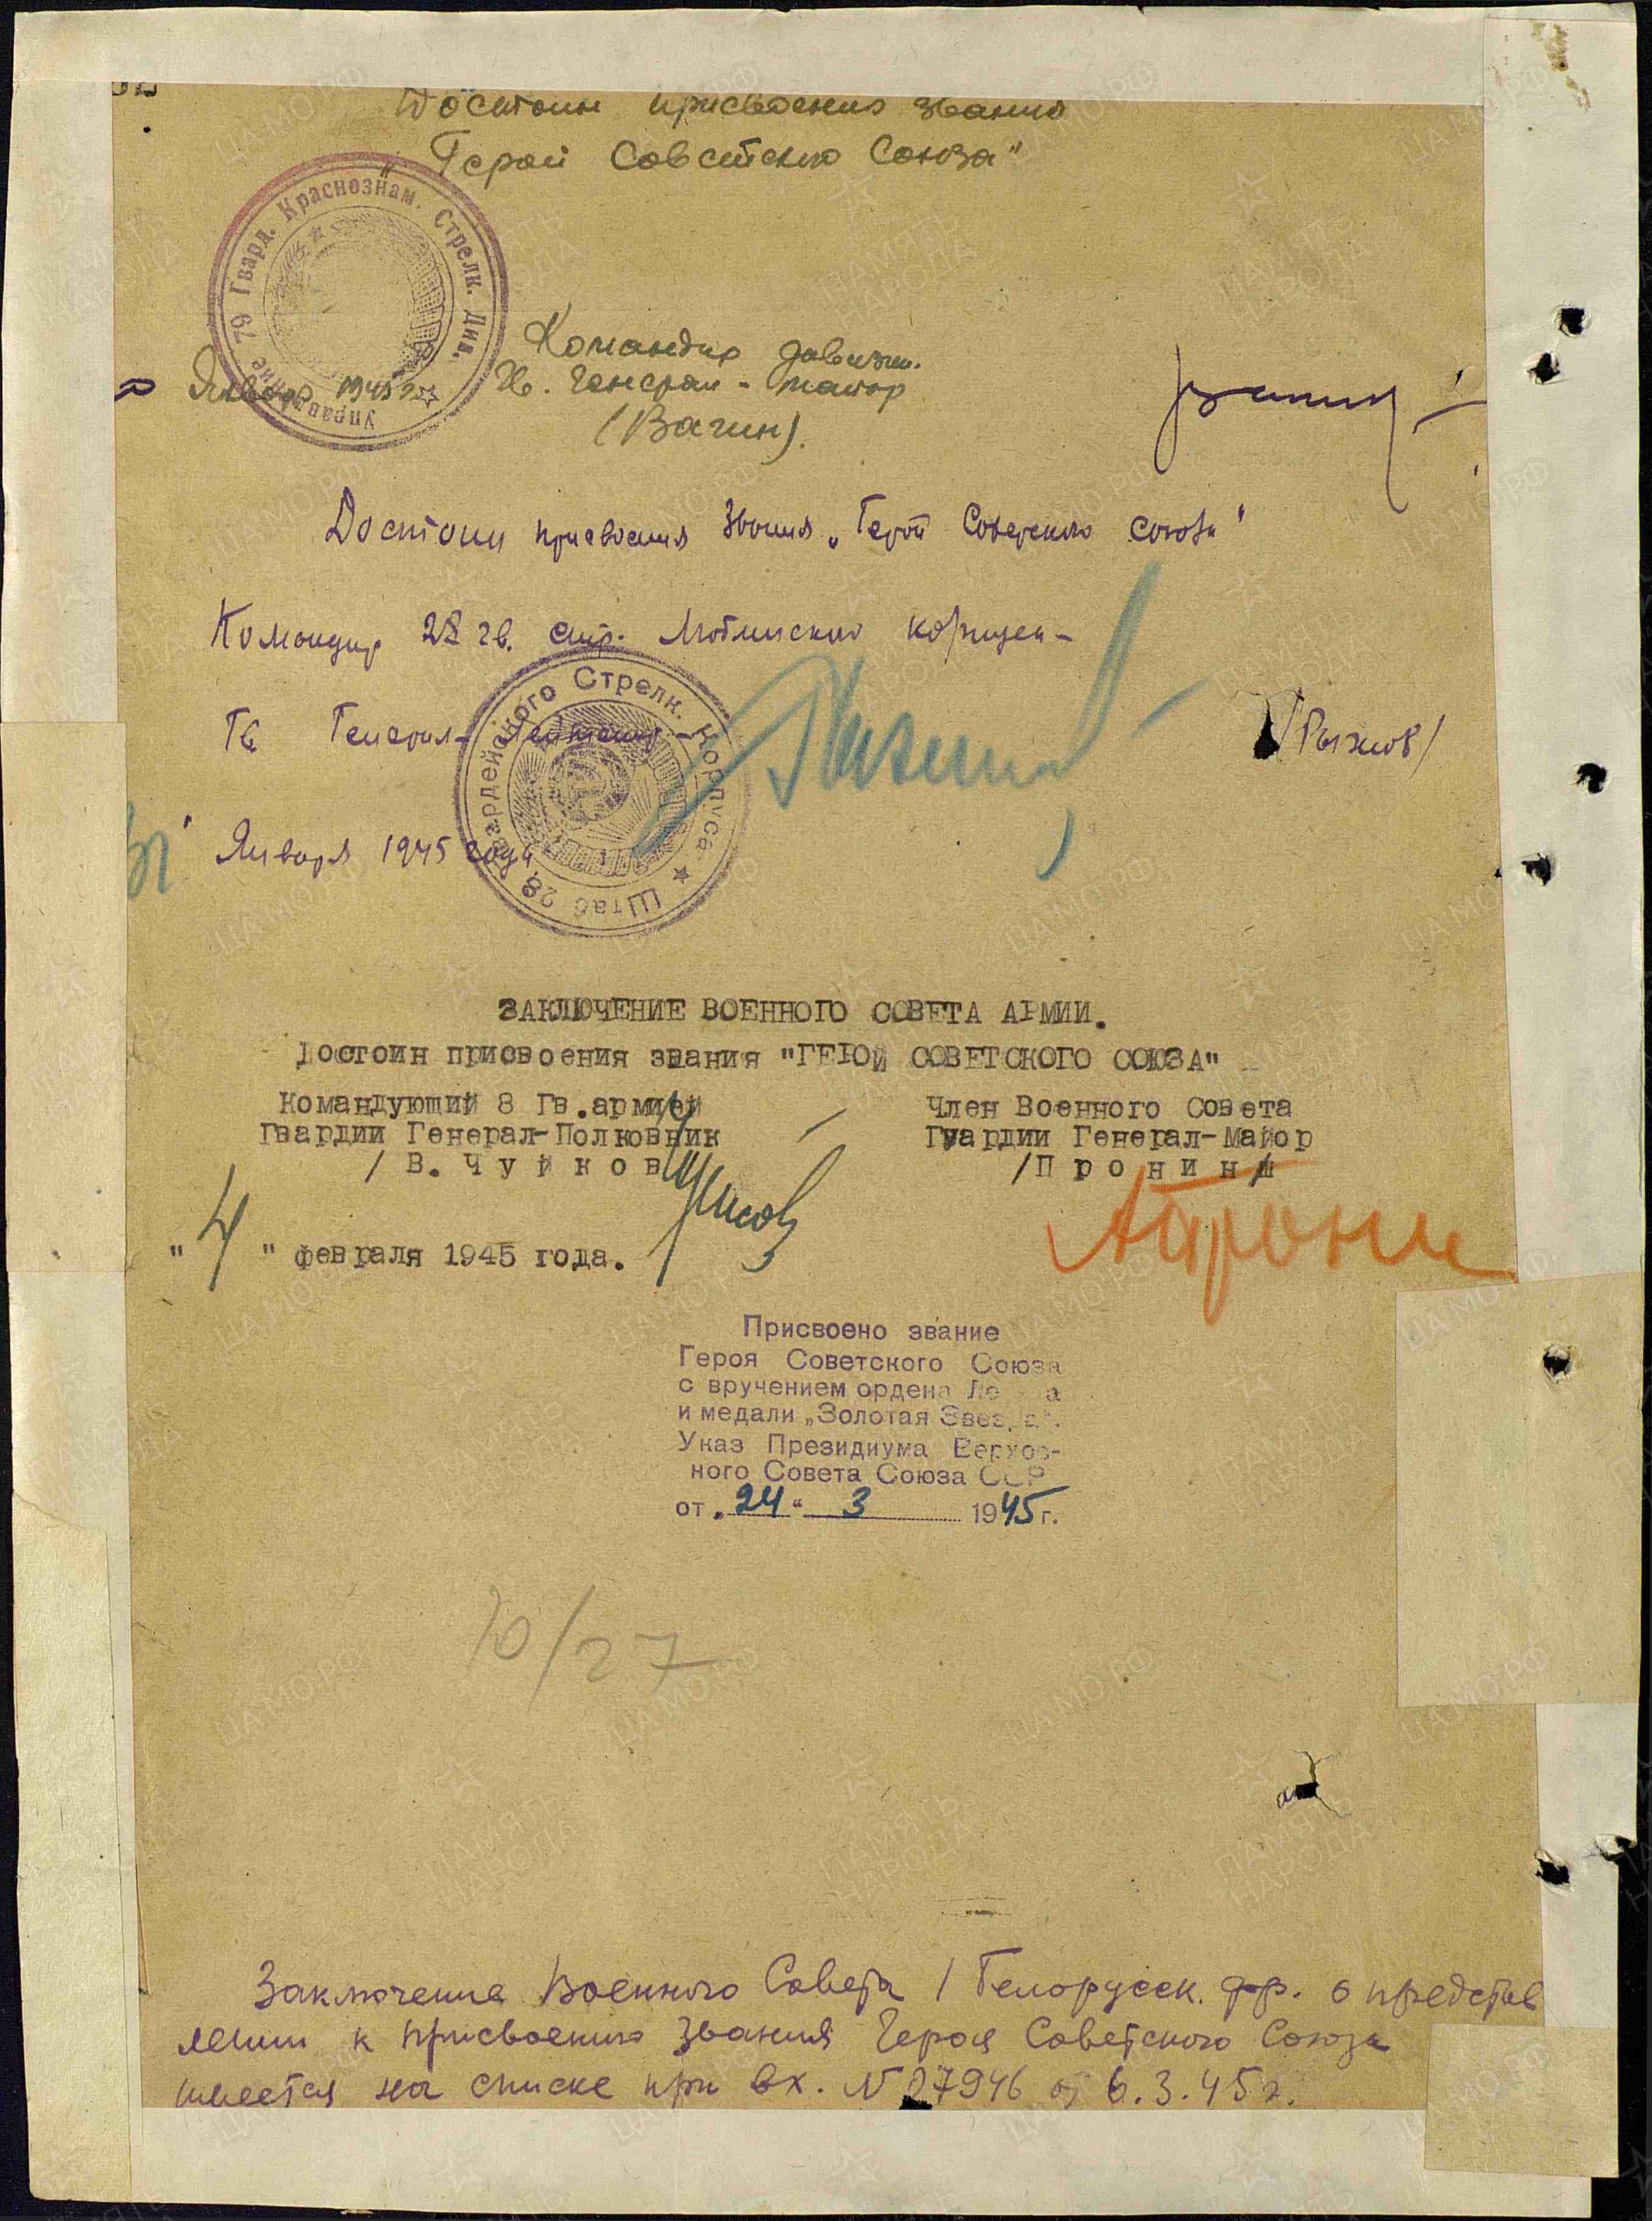 Достоин присвоения звания
"Герой Советского Союза"
Управление 79 Гвард. Краснознам. Стрелк. Див.
Командир дивизии
Января 1945 г. Гв. Генерал-майор
(Вагин).
Достоин присвоения Звания „Герой Советского Союза"
Командир 28 гв. стр. Люблинского корпуса-
Гв Генерал-Лейтенант- /Рыжов/
Штаб 28 Гвардейского Стрелк. Корпуса
31 Января 1945 года
ЗАКЛЮЧЕНИЕ ВОЕННОГО СОВЕТА АРМИИ.
Достоин присвоения звания "ГЕРОЙ СОВЕТСКОГО СОЮЗА"
Командующий 8 Гв.армией Член Военного Совета
Гвардии Генерал-Полковник Гвардии Генерал-Майор
/В. Чуйков/ /Пронин/
"4" февраля 1945 года.
Присвоено звание
Героя Советского Союза
с вручением ордена Ленина
и медали „Золотая Звезда".
Указ Президиума Верхов-
ного Совета Союза ССР
от „24" 3 1945 г.
10/27
Заключение Военного Совета 1 Белорусск. фр. о представ
лении к присвоению Звания Героя Советского Союза
имеется на списке при вх. N 27946 от 6.3.45 г.